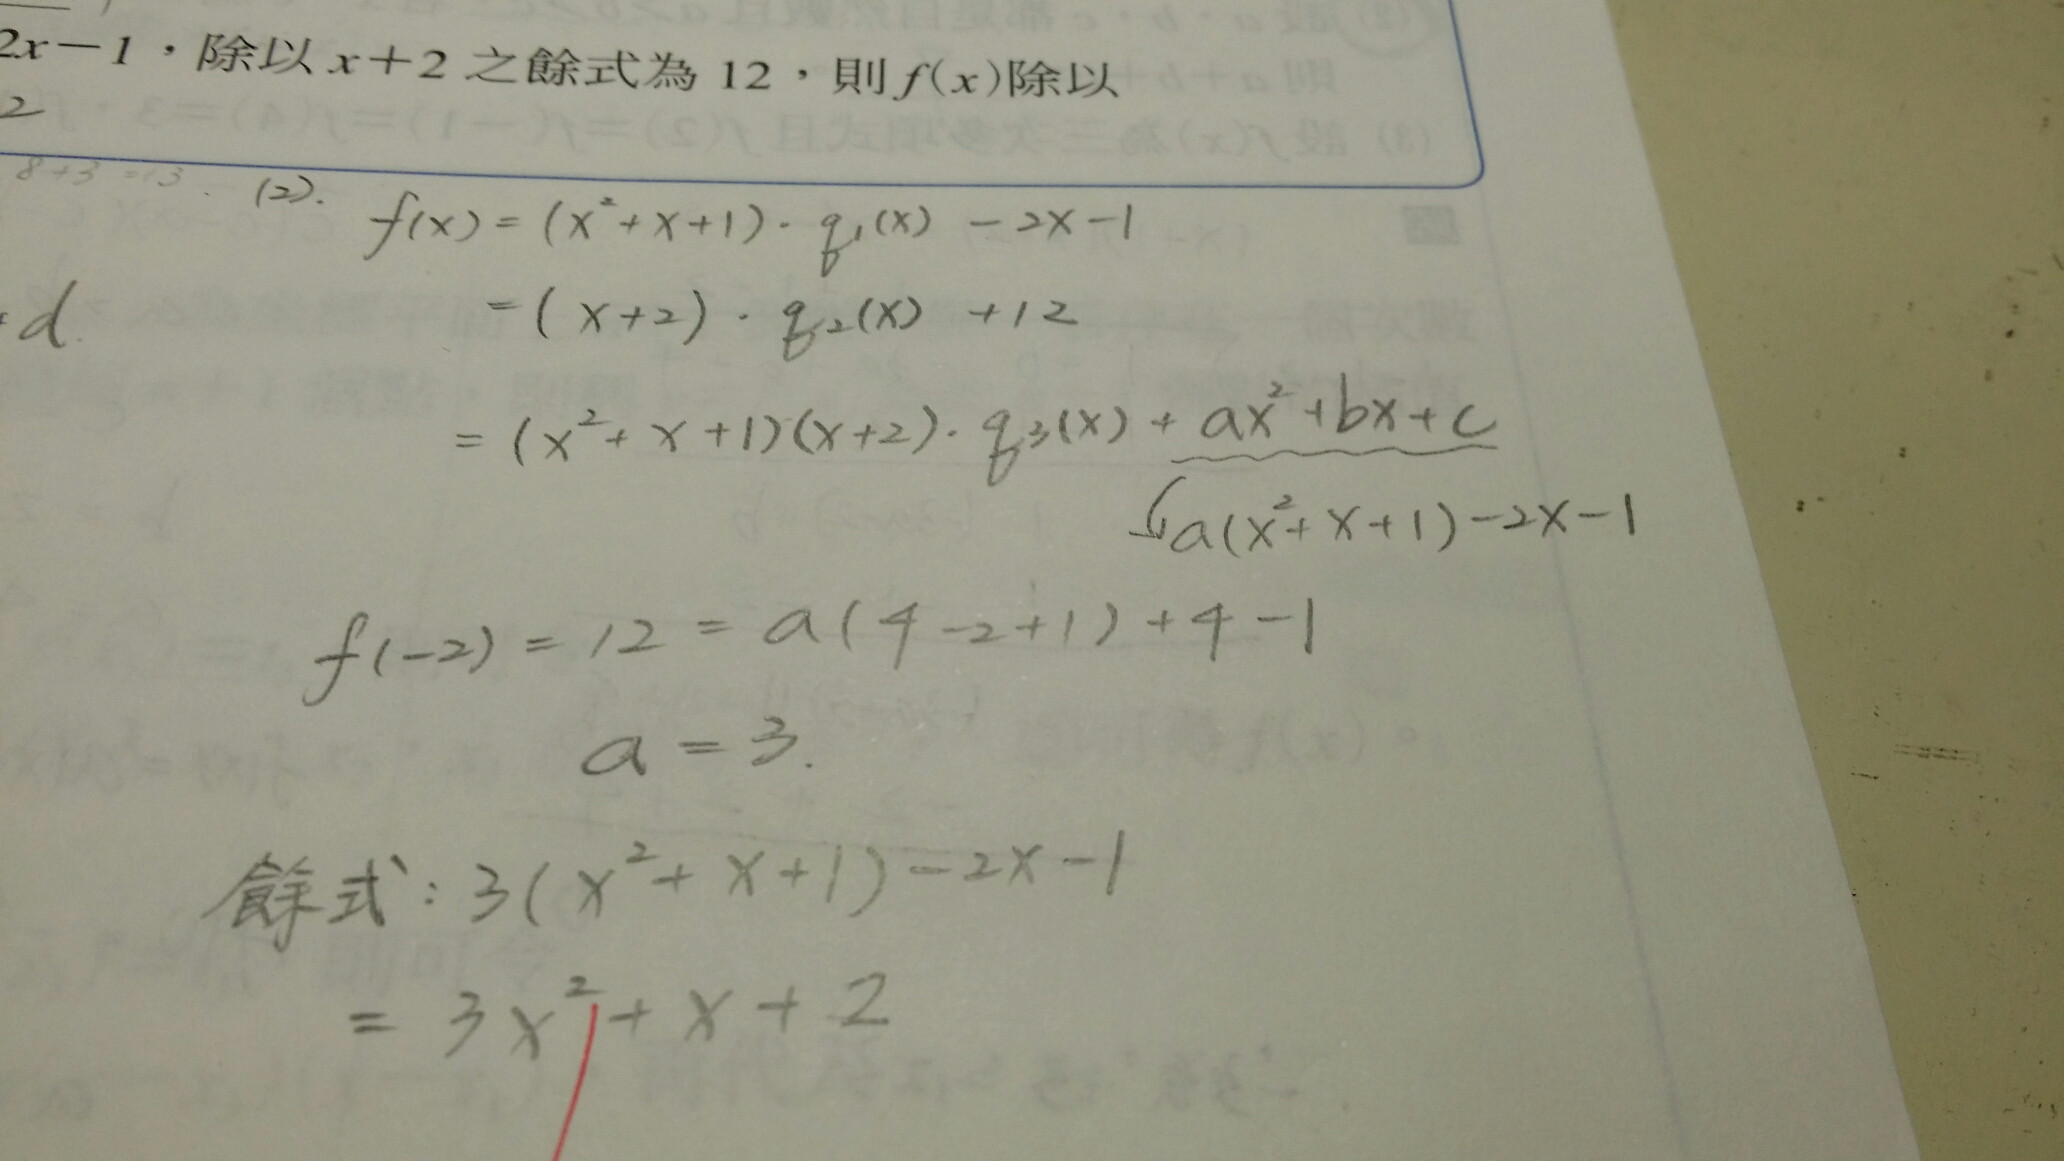 2x－1，除以 x＋2 之餘式為 12，則 f(x)除以
2
8+3=13
(2). f(x) = (x²+x+1)·q₁(x) －2x－1
d
= (x+2)·q₂(x) +12
= (x²+x+1)(x+2)·q₃(x) + ax²+bx+c
a(x²+x+1)－2x－1
f(-2) = 12 = a(4-2+1)+4-1
a = 3.
餘式：3(x²+x+1)－2x－1
= 3x²+x+2